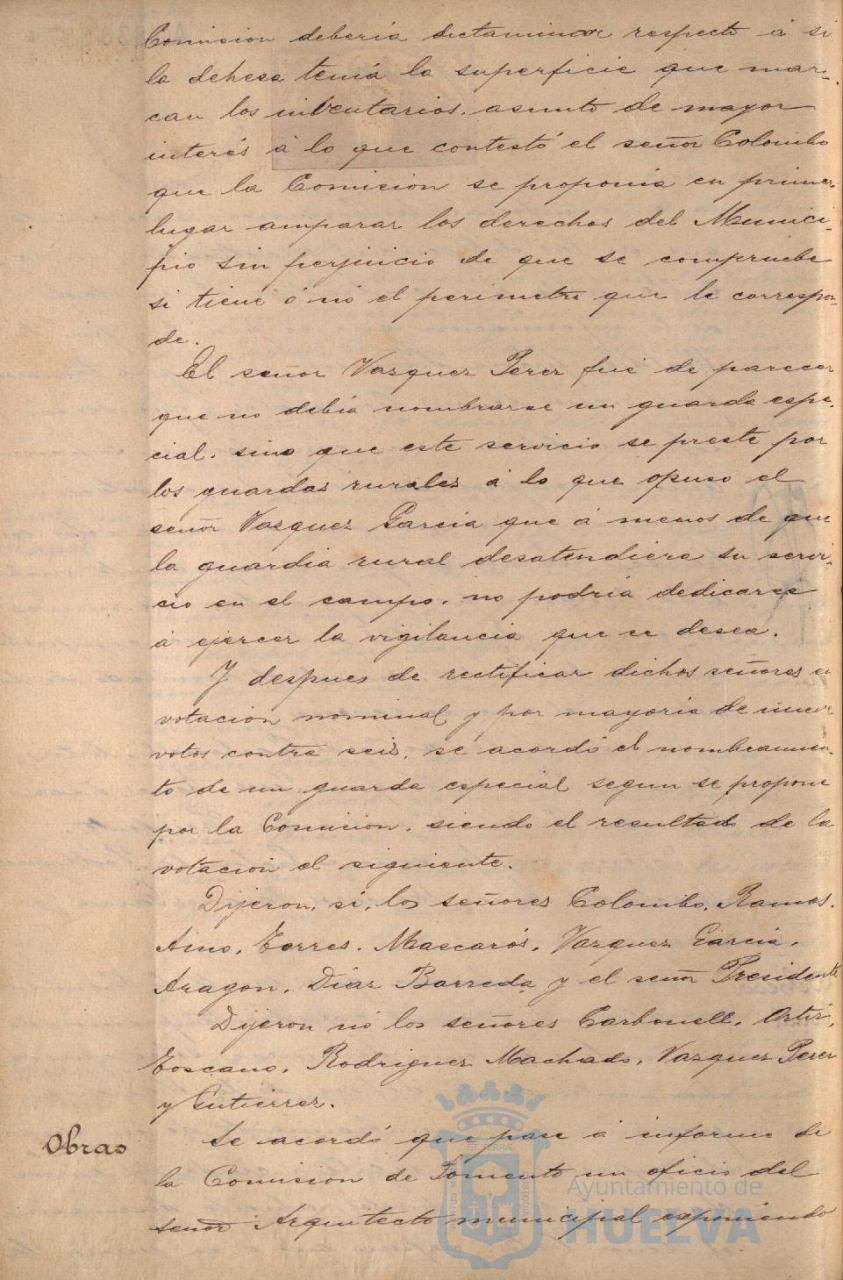 Comision deberia dictaminar respecto á si
la dehesa tenia la superficie que mar-
can los inventarios, asunto de mayor
interés á lo que contestó el señor Colombo
que la Comision se proponia en primer
lugar amparar los derechos del Munici-
pio sin perjuicio de que se compruebe
si tiene ó nó el perimetro que le correspon-
de.
El señor Vazquez Perez fué de parecer
que no debia nombrarse un guarda espe-
cial, sino que este servicio se preste por
los guardas rurales á lo que opuso el
señor Vazquez Garcia que á menos de que
la guardia rural desatendiera su servi-
cio en el campo, no podria dedicarse
á ejercer la vigilancia que se desea.
Y despues de rectificar dichos señores en
votacion nominal y por mayoria de nueve
votos contra seis, se acordó el nombramien-
to de un guarda especial segun se propone
por la Comision, siendo el resultado de la
votacion el siguiente.
Dijeron, si, los señores Colombo, Ramos,
Torres, Mascarós, Vazquez Garcia,
Aragon, Diaz Barreda y el señor Presidente
Dijeron nó los señores Carbonell,
Toscano, Rodriguez Machado, Vazquez Perez
y Gutierrez.
Obras
Se acordó que pase á informe de
la Comision de Fomento un oficio del
señor Arquitecto municipal esponiendo
Ayuntamiento de
HUELVA